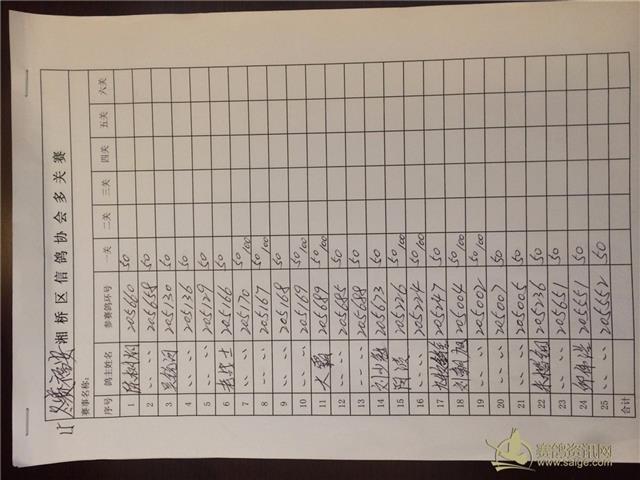 湘桥区信鸽协会多关赛
赛事名称:
序号 鸽主姓名 参赛鸽环号 一关 二关 三关 四关 五关 六关
1 205660 50
2 〃 205658 50
3 205130 50
4 〃 205136 50
5 〃 205129 50
6 205166 50
7 〃 205170 50/100
8 〃 205167 50/100
9 〃 205168 50
10 〃 205169 50/100
11 大霸 205689 50/100
12 〃 205685 50
13 〃 205688 50
14 205673 50
15 205226 50/100
16 〃 205224 50/100
17 205247 50
18 205004 50/100
19 〃 205002 50/100
20 〃 205007 50
21 〃 205005 50
22 205236 50
23 〃 205651 50
24 205551 50
25 〃 205552 50
合计
赛鸽资讯网
www.saige.com